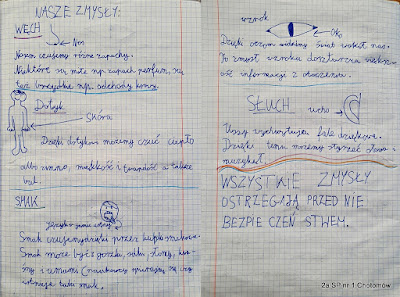 NASZE ZMYSŁY:
WĘCH
Nos
Nosem czujemy różne zapachy.
Niektóre są miłe np. zapach perfum, są
też brzydkie np. odchody konia.
Dotyk
Skóra
Dzięki dotykowi możemy czuć ciepło
albo zimno, miękkość i twardość a także
ból.
SMAK
Smak czujemy dzięki przez kubki smakowe.
Smak może być: gorzki, słodki, słony, kwaś-
ny i umami (naukowcy
wzrok
Oko
Dzięki oczom widzimy świat wokół nas.
To zmysł wzroku dostarcza większ-
ość informacji z otoczenia.
SŁUCH
ucho
Uszy wychwytują fale dźwiękowe.
Dzięki temu możemy słyszeć słowa i
muzykę.
WSZYSTKIE ZMYSŁY
OSTRZEGAJĄ PRZED NIE
BEZPIECZEŃSTWEM.
2a SP nr 1 Chotomów